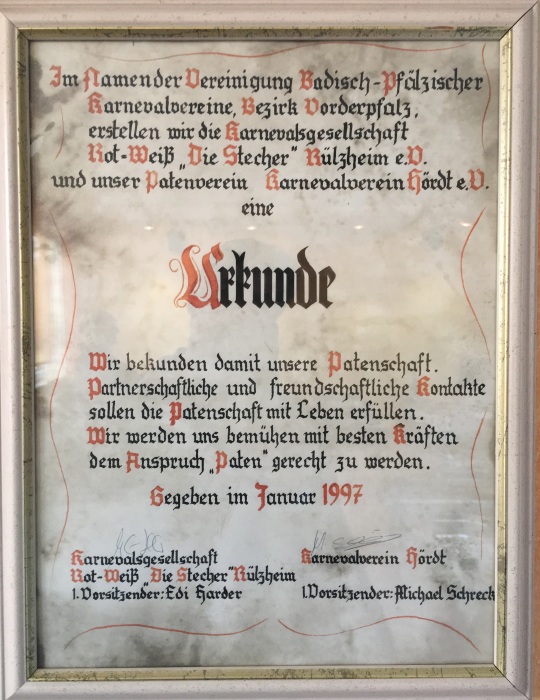 Im Namen der Vereinigung Badisch-Pfälzischer
Karnevalvereine, Bezirk Vorderpfalz,
erstellen wir die Karnevalsgesellschaft
Rot-Weiß „Die Stecher" Rülzheim e.V.
und unser Patenverein Karnevalverein Hördt e.V.
eine
Urkunde
Wir bekunden damit unsere Patenschaft.
Partnerschaftliche und freundschaftliche Kontakte
sollen die Patenschaft mit Leben erfüllen.
Wir werden uns bemühen mit besten Kräften
dem Anspruch „Paten" gerecht zu werden.
Gegeben im Januar 1997
Karnevalsgesellschaft
Rot-Weiß „Die Stecher" Rülzheim
1.Vorsitzender: Edi Harder
Karnevalverein Hördt
1.Vorsitzender: Michael Schreck